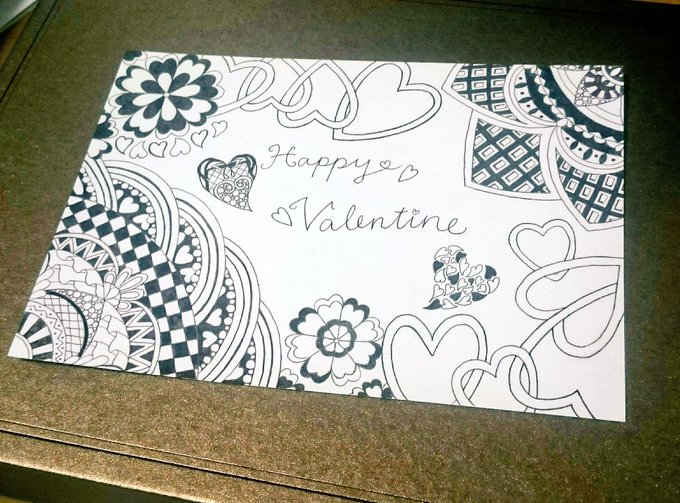 Happy
Valentine